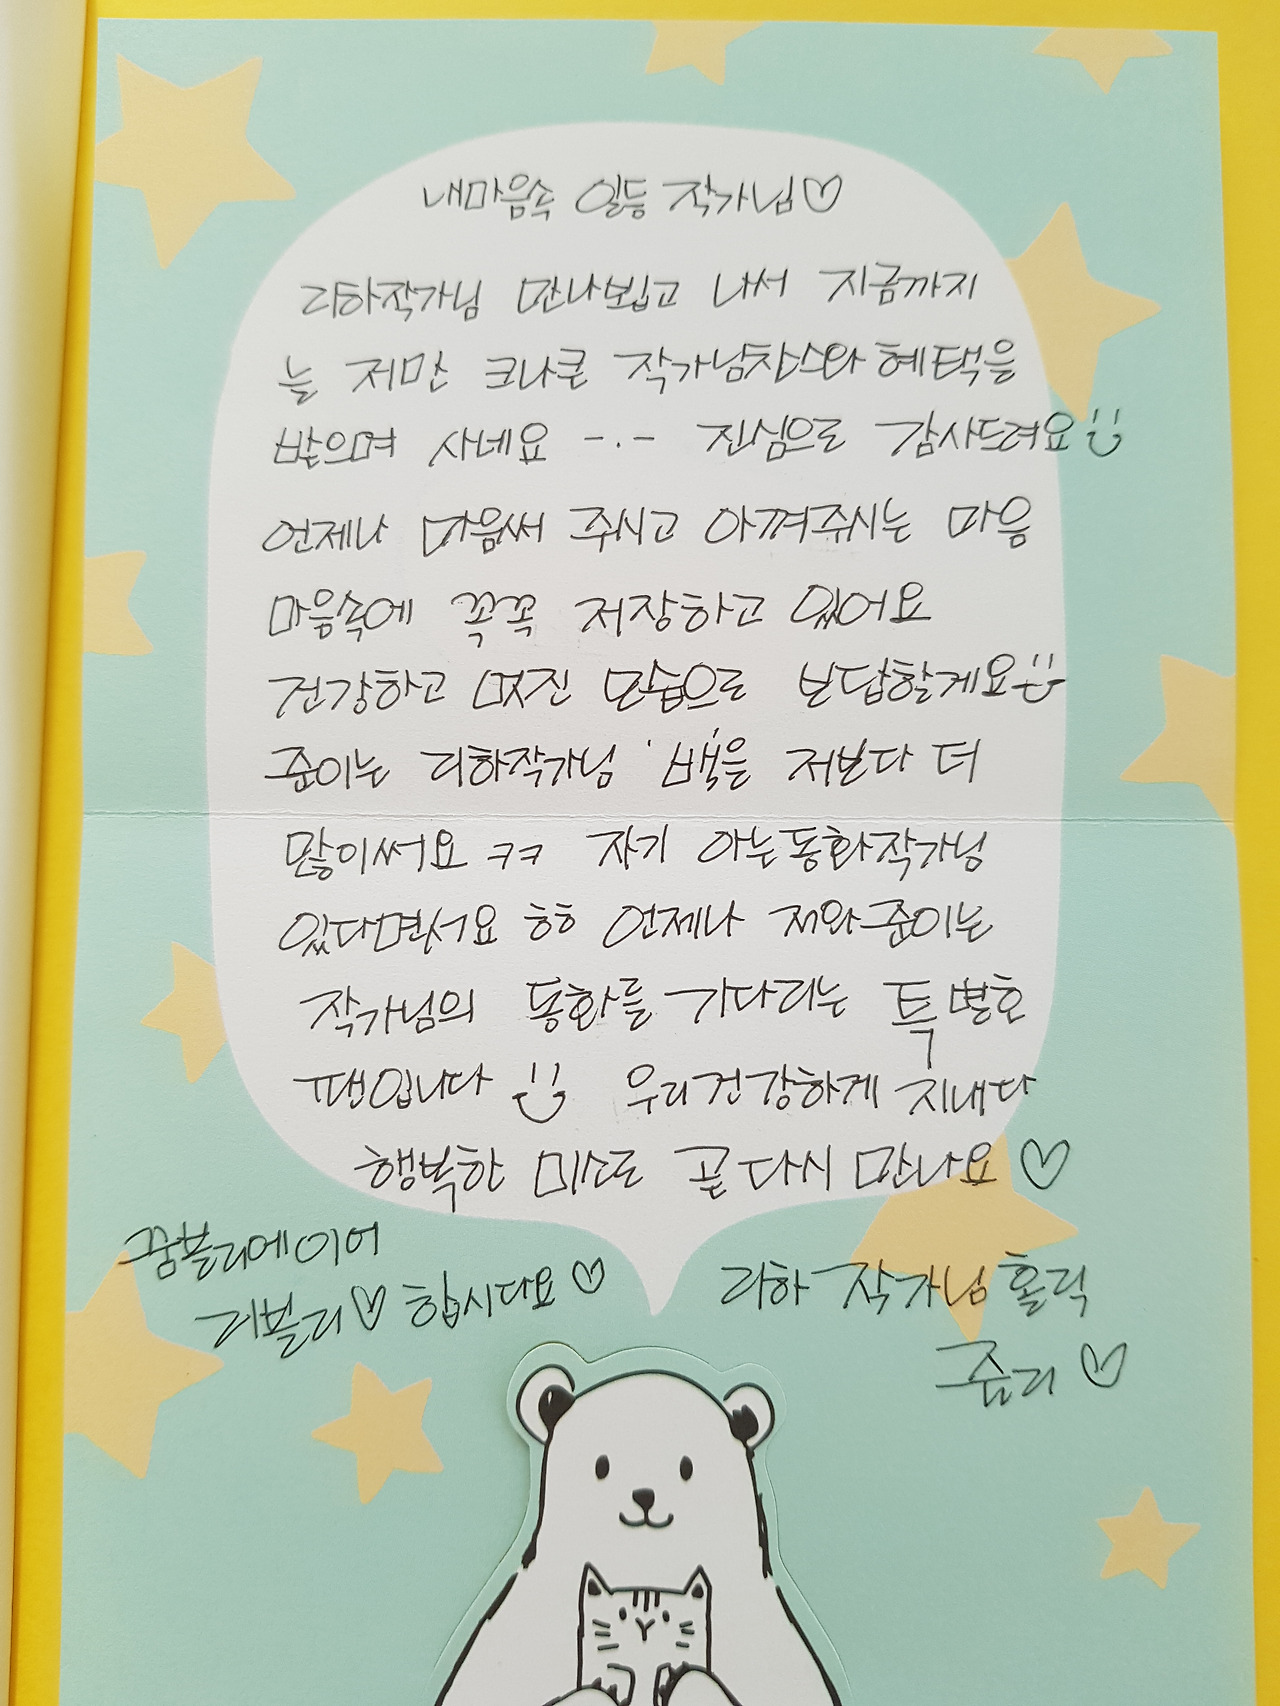 내마음속 일등 작가님♡
리하작가님 만나뵙고 나서 지금까지
늘 저만 크나큰 작가님찬스와 혜택을
받으며 사네요 -.- 진심으로 감사드려요
언제나 마음써 주시고 아껴주시는 마음
마음속에 꼭꼭 저장하고 있어요
건강하고 멋진 모습으로 보답할게요
준이는 리하작가님 '빽'을 저보다 더
많이써요 ㅋㅋ 자기 아는동화작가님
있다면서요 ㅎㅎ 언제나 저와준이는
작가님의 동화를 기다리는 특별호
팬입니다 우리건강하게 지내다
행복한 미소로 곧 다시 만나요 ♡
꿈블리에이어
리블리♡ 합시다요♡
리하 작가님홀릭
쥼리♡